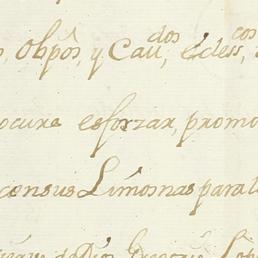 Obpôs, y Cau^dos, écless^cos
procura esforzar, promo
con sus Limosnas para l
de Dios